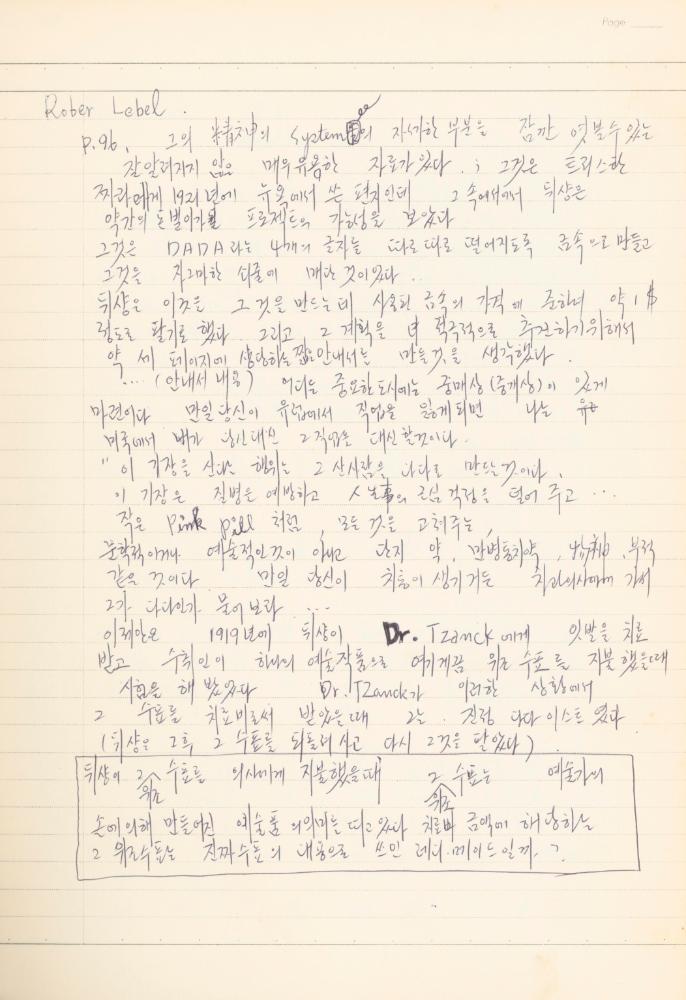 Page
Rober Lebel.
P.96, 그의 精神의 System의 자세한 부분을 잠깐 엿볼수있는
잘알려지지 않은 매우유용한 자료가있다. ; 그것은 트리스탄
짜라에게 1921년에 뉴욕에서 쓴 편지인데 그 속에서 뒤샹은
약간의 돈벌이가 프로젝트의 가능성을 보았다
그것은 DADA라는 4개의 글자를 따로따로 떨어지도록 금속으로 만들고
그것을 자그마한 쇠줄에 매단것이었다 ..
뒤샹은 이것을 그것을 만드는데 사용된 금속의 가격에 준하여 약 1$
정도로 팔기로 했다. 그리고 그 계획을 적극적으로 추진하기위해서
약 세 페이지에 상당하는 짧은안내서를 만들것을 생각했다.
... (안내서 내용) 어디든 중요한도시에는 중매상(중개상)이 있게
마련이다 만일당신이 유럽에서 직업을 잃게되면 나는
미국에서 내가 당신대신 그직업을 대신할것이다.
"이 기장을 산다는 행위는 그 산사람을 다다로 만드는것이다,
이 기장은 질병을 예방하고 人生事의 근심 걱정을 덜어 주고 ...
작은 Pink pill 처럼, 모든 것을 고쳐주는,
문학적이거나 예술적인것이 아니고 단지 약, 만병통치약, 부적
같은 것이다 만일 당신이 치통이 생기거든 치과의사에게 가서
그가 다다인가 물어보라 ...
이제안은 1919년에 뒤샹이 Dr. Tzanck에게 잇발을 치료
받고 수취인이 하나의 예술작품으로 여기게끔 위조수표를 지불했을때
시험을 해 봤었다 Dr. TZanck가 이러한 상황에서
그 수표를 치료비로써 받았을때 그는 진정 다다이스트였다
(뒤샹은 그후 그 수표를 되돌려사고 다시 그것을 팔았다)
뒤샹이 그 위조 수표를 의사에게 지불했을때 그 위조 수표는 예술가의
손에의해 만들어진 예술품의의미를 띠고있다 치료비 금액에 해당하는
그 위조수표는 진짜수표의 내용으로 쓰인 레디·메이드일까. ?